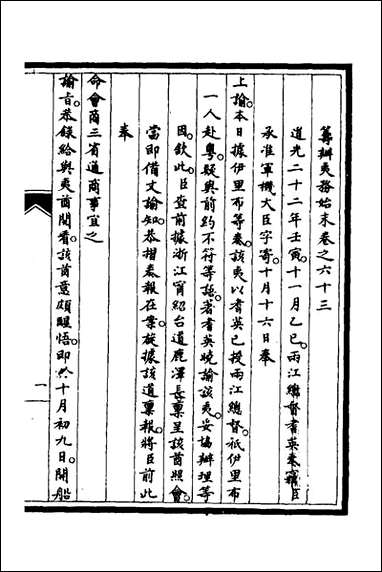 籌辦夷務始末卷之六十三
道光二十二年壬寅。十一月乙巳。兩江總督耆英奏。竊臣
承准軍機大臣字寄。十月十六日奉
上諭。本日據伊里布等奏。該夷以耆英已授兩江總督。祇伊里布
一人赴粵。疑與前約不符等語。著耆英曉諭該夷。妥協辦理等
因。欽此。臣查前據浙江甯紹台道鹿澤長稟呈該酋照會。
當即備文諭知。恭摺奏報在案。旋據該道稟報。將臣前此
奉
命會商三省通商事宜之
諭旨。恭錄給與夷酋閱看。該酋意頗釂悟。即於十月初九日。開船
一